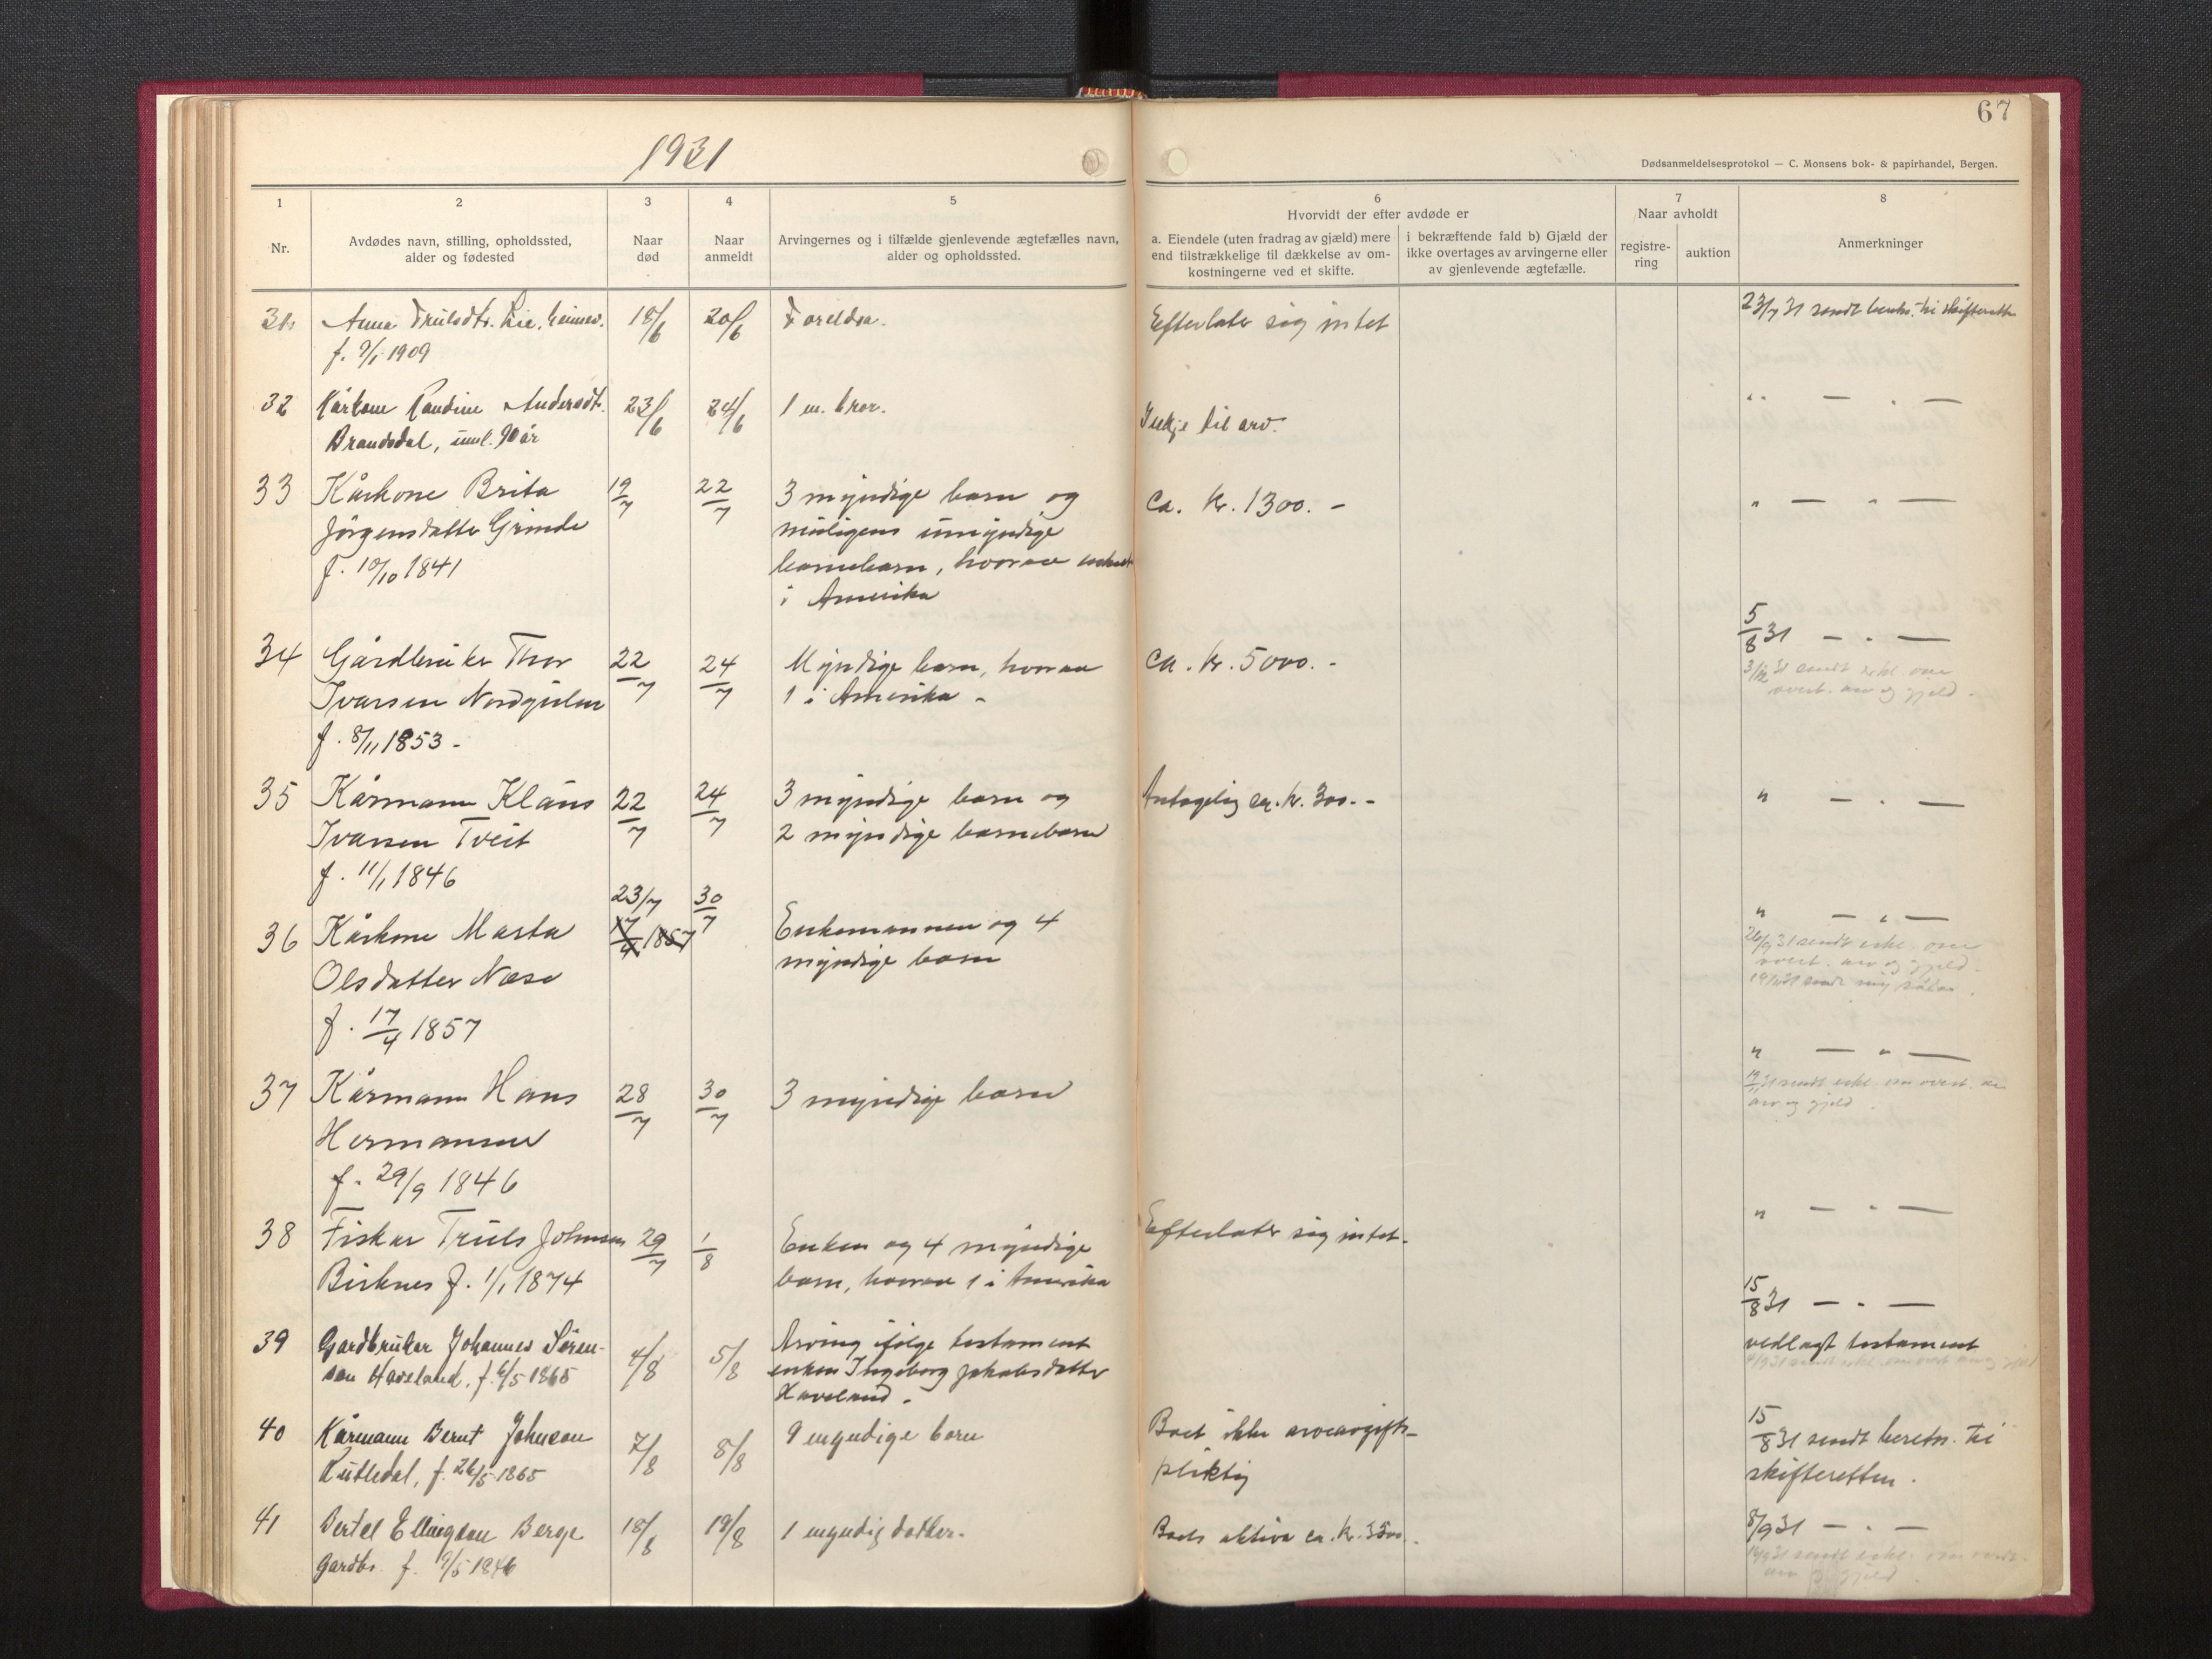 67
1931
Dødsanmeldelsesprotokol — C. Monsens bok- & papirhandel, Bergen.
1
Nr.
2
Avdødes navn, stilling, opholdssted,
alder og fødested
3
Naar
død
4
Naar
anmeldt
5
Arvingernes og i tilfælde gjenlevende ægtefælles navn,
alder og opholdssted.
6
Hvorvidt der efter avdøde er
a. Eiendele (uten fradrag av gjæld) mere
end tilstrækkelige til dækkelse av om-
kostningerne ved et skifte.
i bekræftende fald b) Gjæld der
ikke overtages av arvingerne eller
av gjenlevende ægtefælle.
7
Naar avholdt
registre-
ring
auktion
8
Anmerkninger
Anna Trulsdtr. 18/6 20/6 Foreldra. Efterlater sig intet 23/7 31 sendt til skifteretten
f. 9/1 1909
32 Kårkone Randine Andersdtr. 23/6 24/6 1 m. bror. Ikkje til arv. " — " —
Brandsdal, uml. 90 år
33 Kårkone Brita 19/7 22/7 3 myndige barn og ca. kr. 1300. - " — " —
Jørgensdatter Grinde muligens umyndige
f. 10/10 1841 barnebarn, hvorav
i Amerika
34 Gårdbruker Thor 22/7 24/7 Myndige barn, hvorav ca. kr. 5000. - 5/8 31 — " —
Ivarsen 1 i Amerika - 3/12 31 sendt erkl. om
f. 8/11 1853 - overt. arv og gjeld.
35 Kårmann Klaus 22/7 24/7 3 myndige barn og Antagelig ca. kr. 300. - " — " —
Ivarsen Tveit 2 myndige barnebarn
f. 11/1 1846
36 Kårkone Marta 23/7 17/4 1857 30/7 Enkemannen og 4 " — " —
Olsdatter Nese myndige barn 26/9 31 sendt erkl. om
f. 17/4 1857 overt. arv og gjeld.
sendt
37 Kårmann Hans 28/7 30/7 3 myndige barn " — " —
Hermansen sendt erkl. om overt. av
f. 29/9 1846 arv og gjeld.
38 Fisker Truls Johnsen 29/7 1/8 Enken og 4 myndige Efterlater sig intet. " — " —
Birknes f. 1/1 1874 barn, hvorav 1 i Amerika
39 Gardbruker Johannes Søren- 4/8 5/8 Arving ifølge testament 15/8 31 — " —
sen Haveland, f. 6/5 1865 enken Ingeborg Jakobsdatter vedlagt testament
Haveland. sendt erkl. om overt. arv og gjeld
40 Kårmann Bernt Johnson 7/8 8/8 9 myndige born Boet ikke arveavgifts- 15/8 31 sendt beretn. til
Rutledal, f. 26/5 1865 pliktig skifteretten.
41 Bertel Ellingsen Berge 18/8 19/8 1 myndig dotter. Boets aktiva ca. kr. 3500. 8/9 31 — " —
Gardbr. f. 9/5 1846 sendt erkl. om overt.
arv og gjeld.